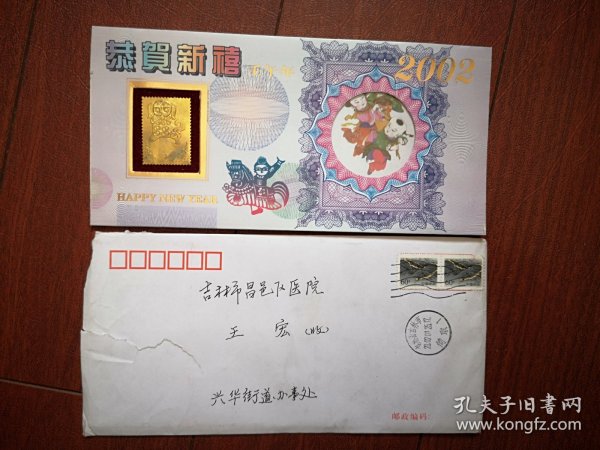 恭賀新禧
2002
HAPPY NEW YEAR
吉林市昌邑区医院
王宏(收)
兴华街道办事处
邮政编码:
孔夫子旧书网
www.kongfz.com